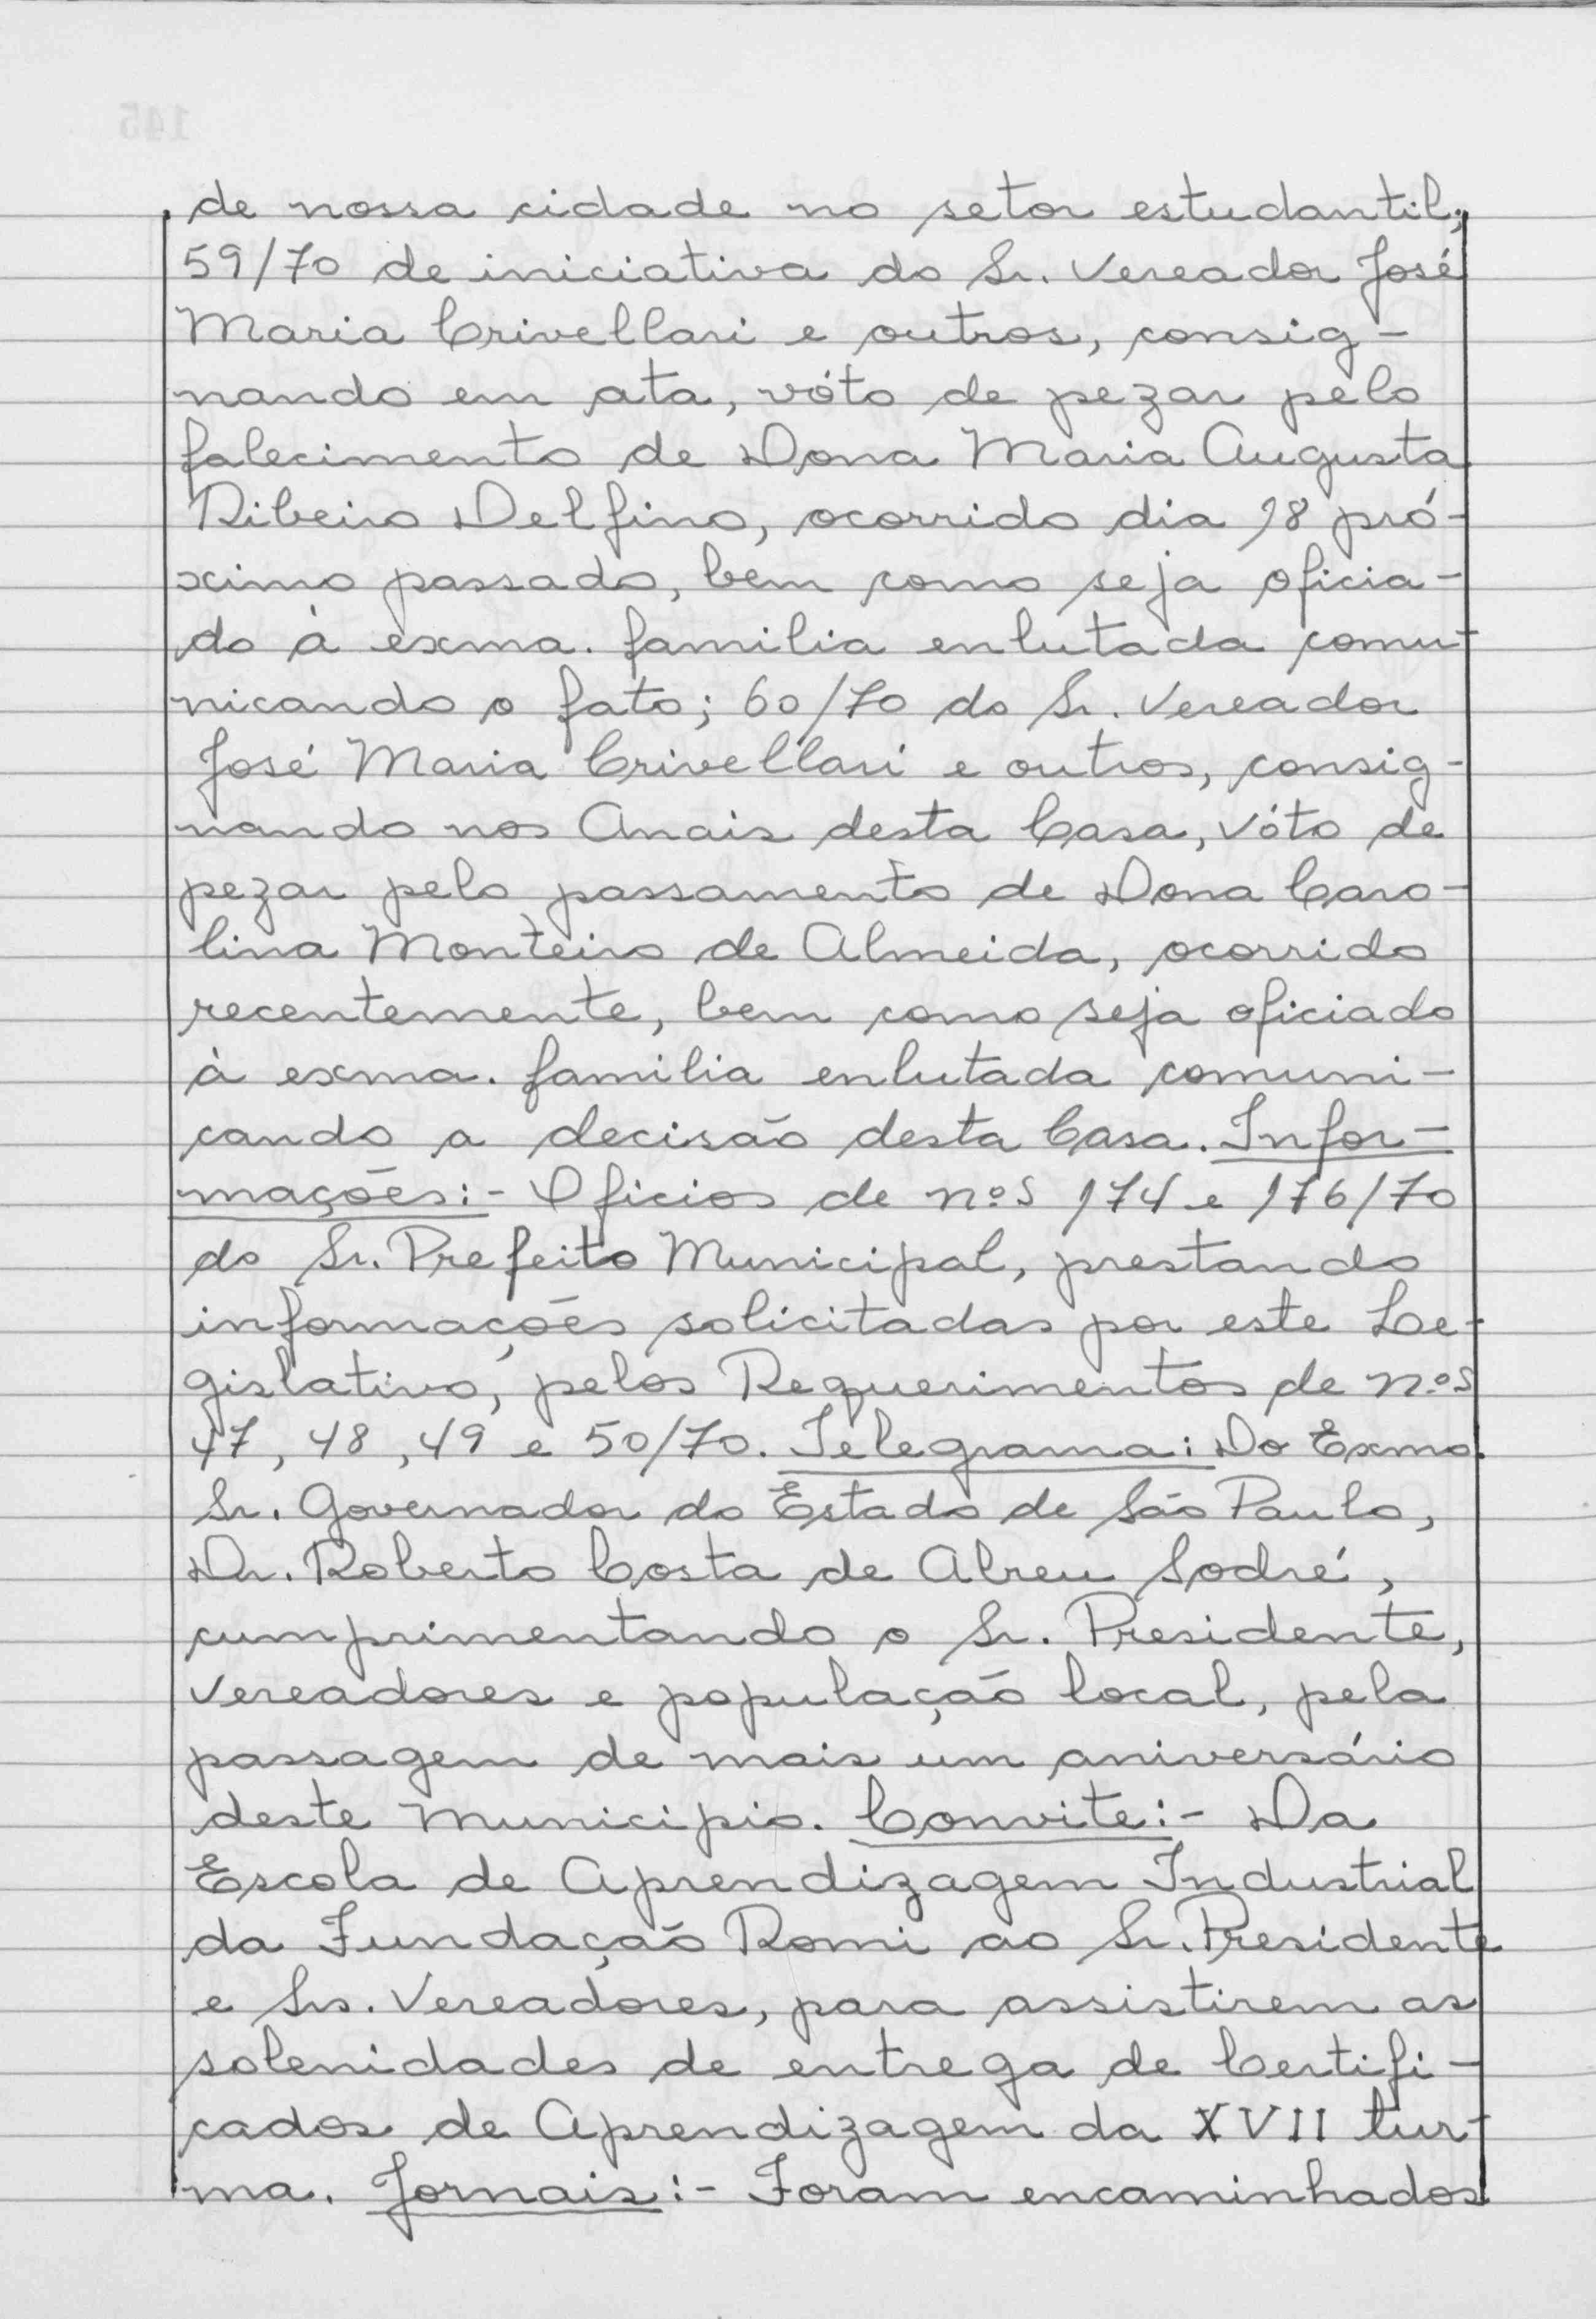 de nossa cidade no setor estudantil;
59/70 de iniciativa do Sr. Vereador José
Maria Crivellari e outros, consig-
nando em ata, vóto de pezar pelo
falecimento de Dona Maria Augusta
Ribeiro Delfino, ocorrido dia 18 pró-
ximo passado, bem como seja oficia-
do à exma. familia enlutada comu-
nicando o fato; 60/70 do Sr. Vereador
José Maria Crivellari e outros, consig-
nando nos Anais desta Casa, vóto de
pezar pelo passamento de Dona Caro-
lina Monteiro de Almeida, ocorrido
recentemente, bem como seja oficiado
à exma. familia enlutada comuni-
cando a decisão desta Casa. Infor-
mações:- Oficios de nºs 174 e 176/70
do Sr. Prefeito Municipal, prestando
informações solicitadas por este Le-
gislativo, pelos Requerimentos de nºs
47, 48, 49 e 50/70. Telegrama: Do Exmo.
Sr. Governador do Estado de São Paulo,
Dr. Roberto Costa de Abreu Sodré,
cumprimentando o Sr. Presidente,
Vereadores e população local, pela
passagem de mais um aniversário
deste Municipio. Convite:- Da
Escola de Aprendizagem Industrial
da Fundação Romi ao Sr. Presidente
e Srs. Vereadores, para assistirem as
solenidades de entrega de Certifi-
cados de Aprendizagem da XVII tur-
ma. Jornais:- Foram encaminhados